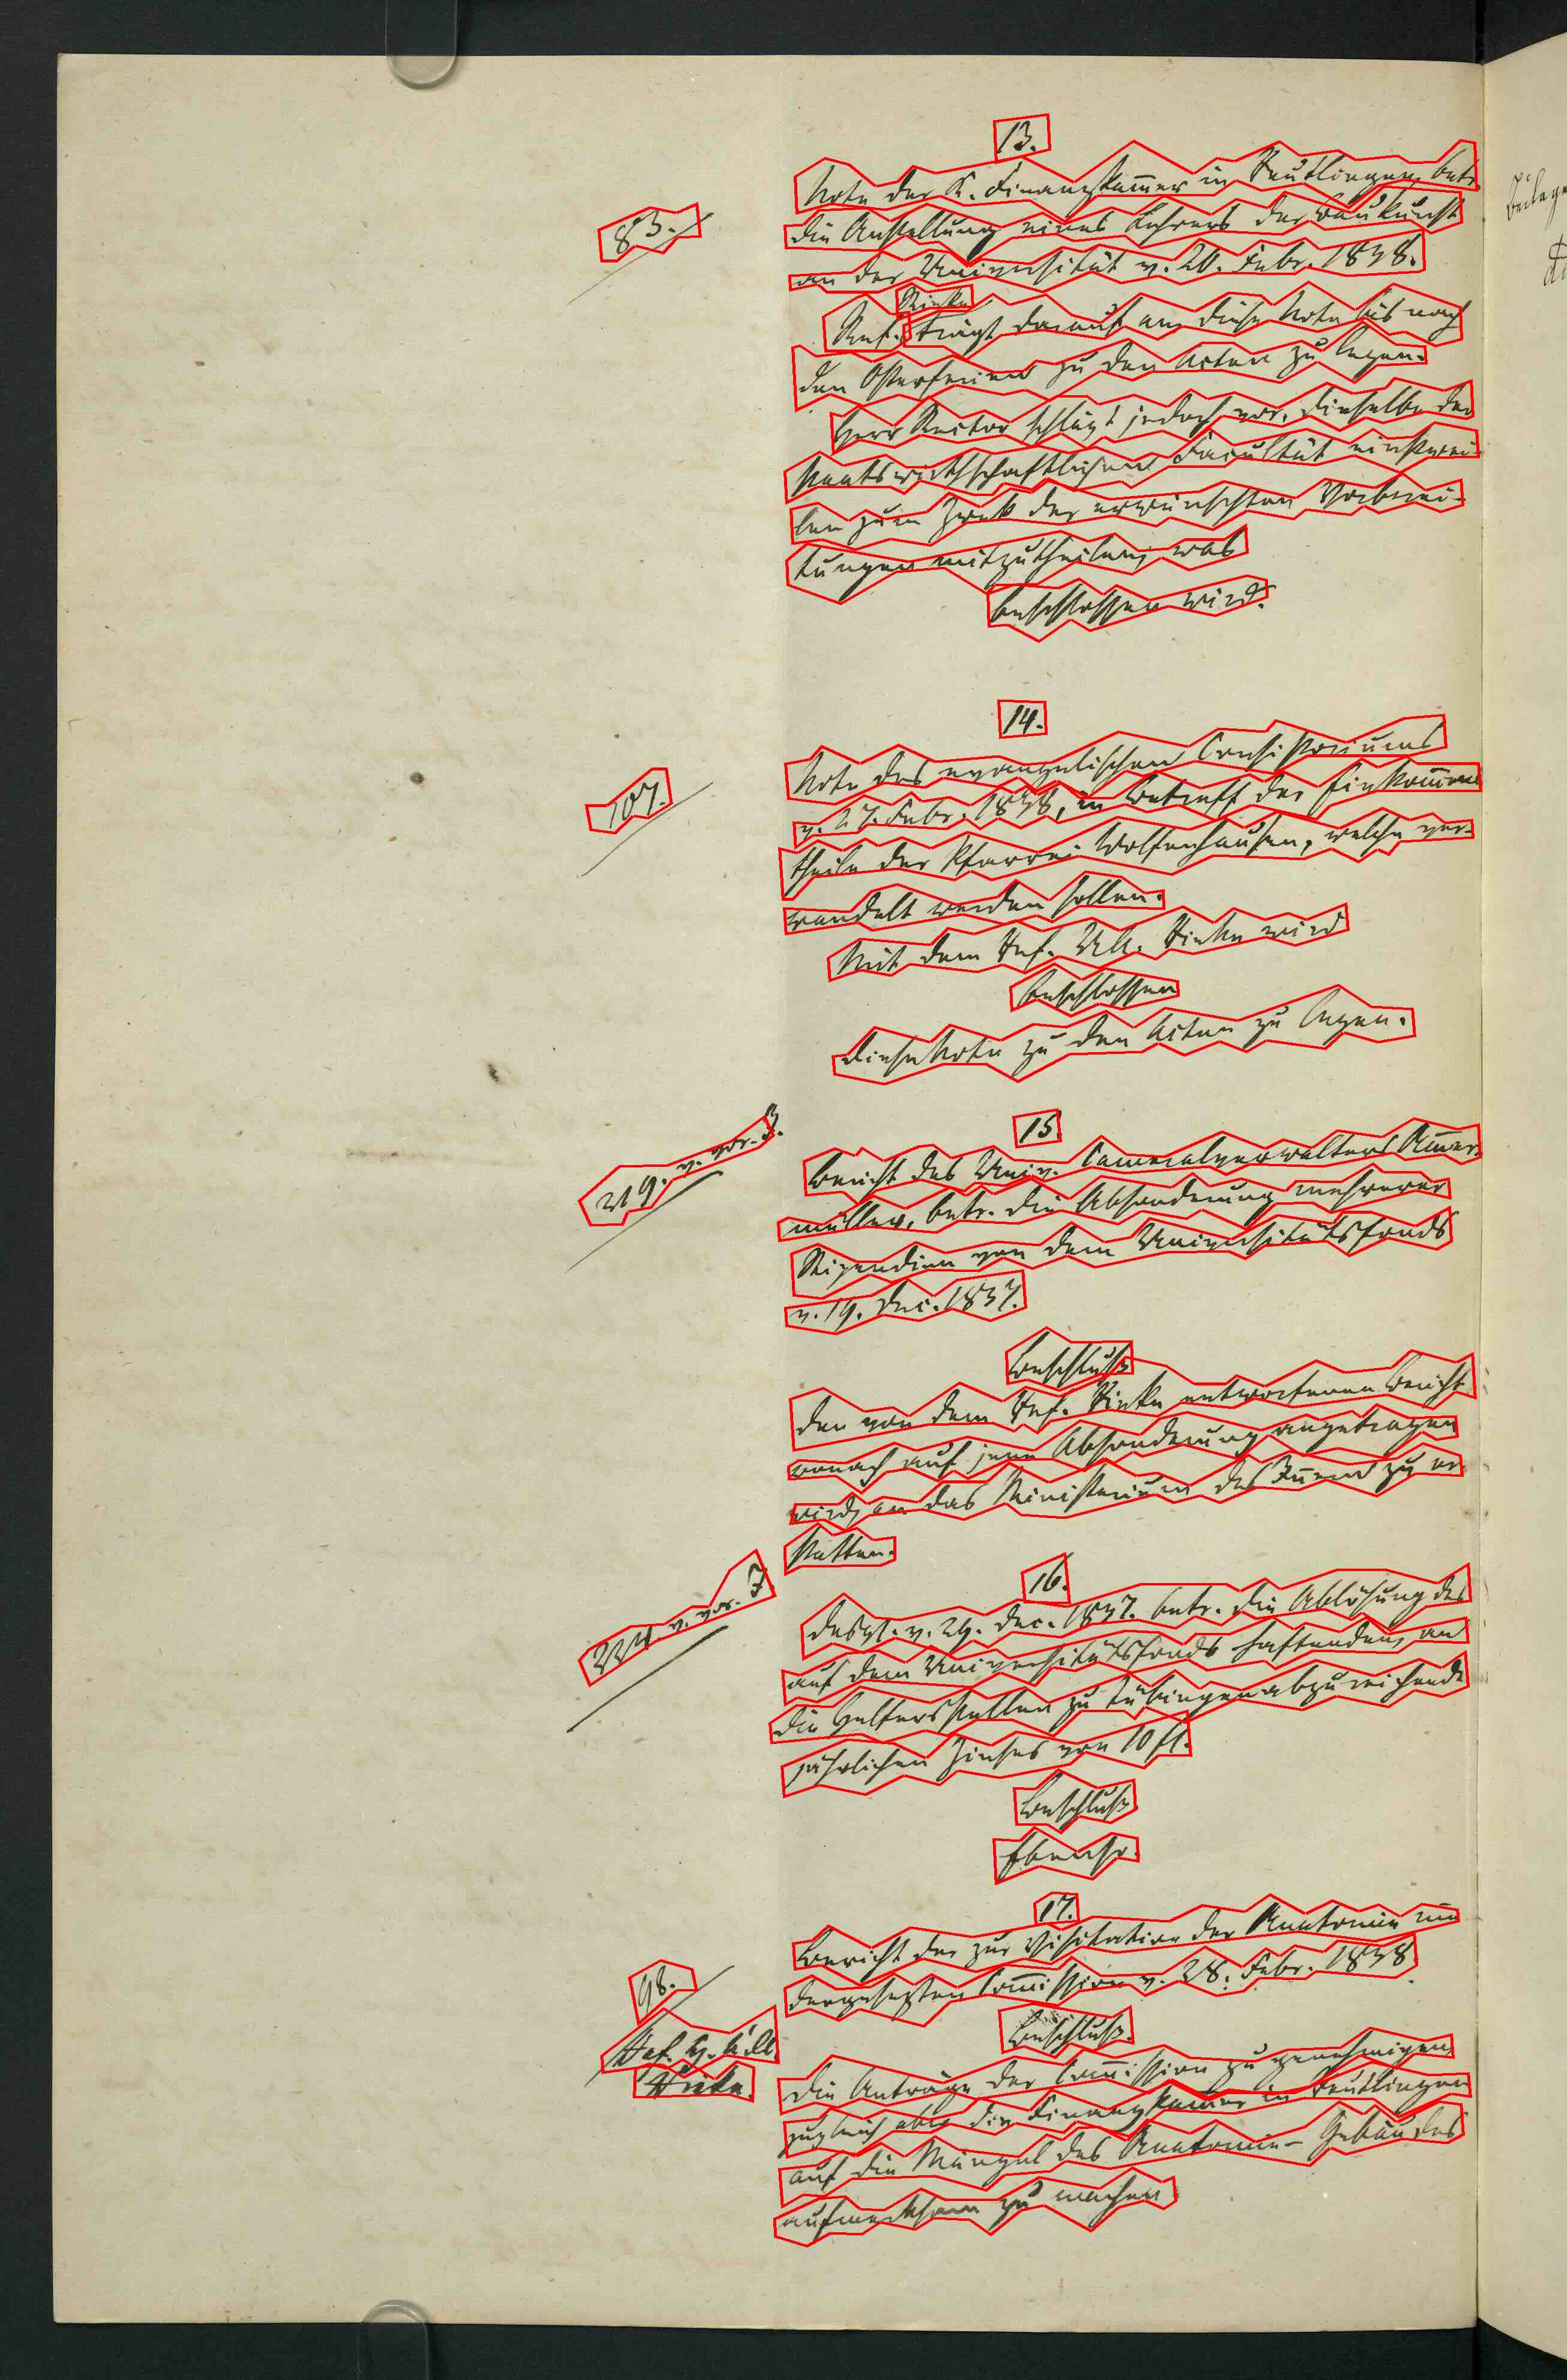 13.
Note der K. Finanzkam̄er in Reutlingen betr.
83.
die Anstellung eines Lehrers der Baukunst
an der Universität v. 20. Febr. 1838.
Rinke
Ref. trägt darauf an, diese Note bis nach
den Osterferien zu den Acten zu legen.
Herr Rector schlägt jedoch vor, dieselbe der
staatswirthschaftlichen Facultät einstwei-
len zum Zwek der erwünschten Vorberei-
tungen mitzutheilen, was
beschlossen wird.
14.
Note des evangelischen Consistoriums
v. 27. Febr. 1838, in Betreff der Einkom̄ens
107.
theile der Pfarrei Wolfenhausen, welche ver-
wandelt werden sollen.
Mit dem Ref. UA. Rinke wird
beschlossen
diese Note zu den Acten zu legen.
15
219. v. vor. J.
Bericht des Univ. Cameralverwalters Am̄er-
müller, betr. die Absonderung mehrerer
Stipendien von dem Universitätsfonds
v. 19. Dec. 1837.
Beschluß
den von dem Ref. Rinke entworfenen Bericht
wonach auf jene Absonderung angetragen
wird, an das Ministerium des In̄ern zu er-
statten.
16.
224 v. vor. J
desgl. v. 29. Dec. 1837. betr. die Ablösung des
auf dem Universitätsfonds haftenden, an
die Helfersstellen zu Tübingen abzureichende
jährlichen Zinses von 10 fl.
Beschluß
Ebenso.
17.
Bericht der zur Visitation der Anatomie nie
dergesetzten Com̄ission v. 28. Febr. 1838
98.
Beschluß.
Ref. H. UA.
Rinke.
die Anträge der Com̄ission zu genehmigen
zugleich aber die Finanzkam̄er in Reutlingen
auf die Mängel des Anatomie-Gebäudes
aufmerksam zu machen